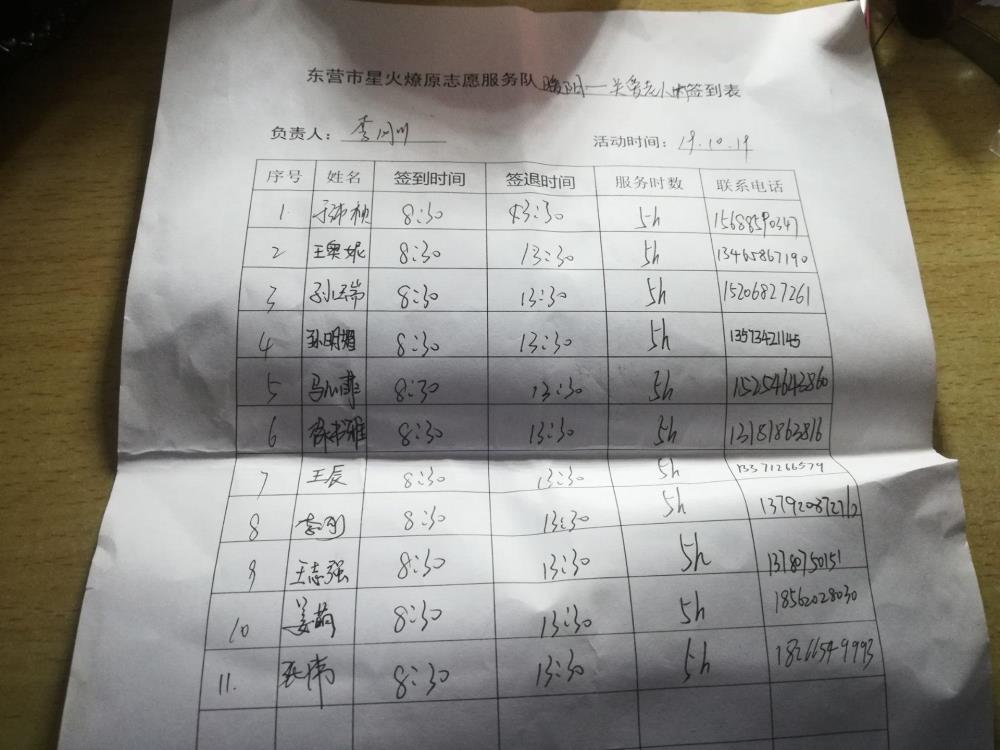 东营市星火燎原志愿服务队暖阳一关爱老人签到表
负责人：李
活动时间：19.10.19
序号 姓名 签到时间 签退时间 服务时数 联系电话
1. 8:30 13:30 5h 15688590347
2 王奥妮 8:30 13:30 5h 13465867190
3 孙瑞 8:30 13:30 5h 15206827261
4 孙明媚 8:30 13:30 5h 13573421145
5 马心菲 8:30 13:30 5h 15254643860
6 徐书雅 8:30 13:30 5h 13181863816
7 王辰 8:30 13:30 5h 13371266579
8 李 8:30 13:30 5h 13792087276
9 王志强 8:30 13:30 5h 13780750151
10 姜萌 8:30 13:30 5h 18562028030
11. 张伟 8:30 13:30 5h 18266549993